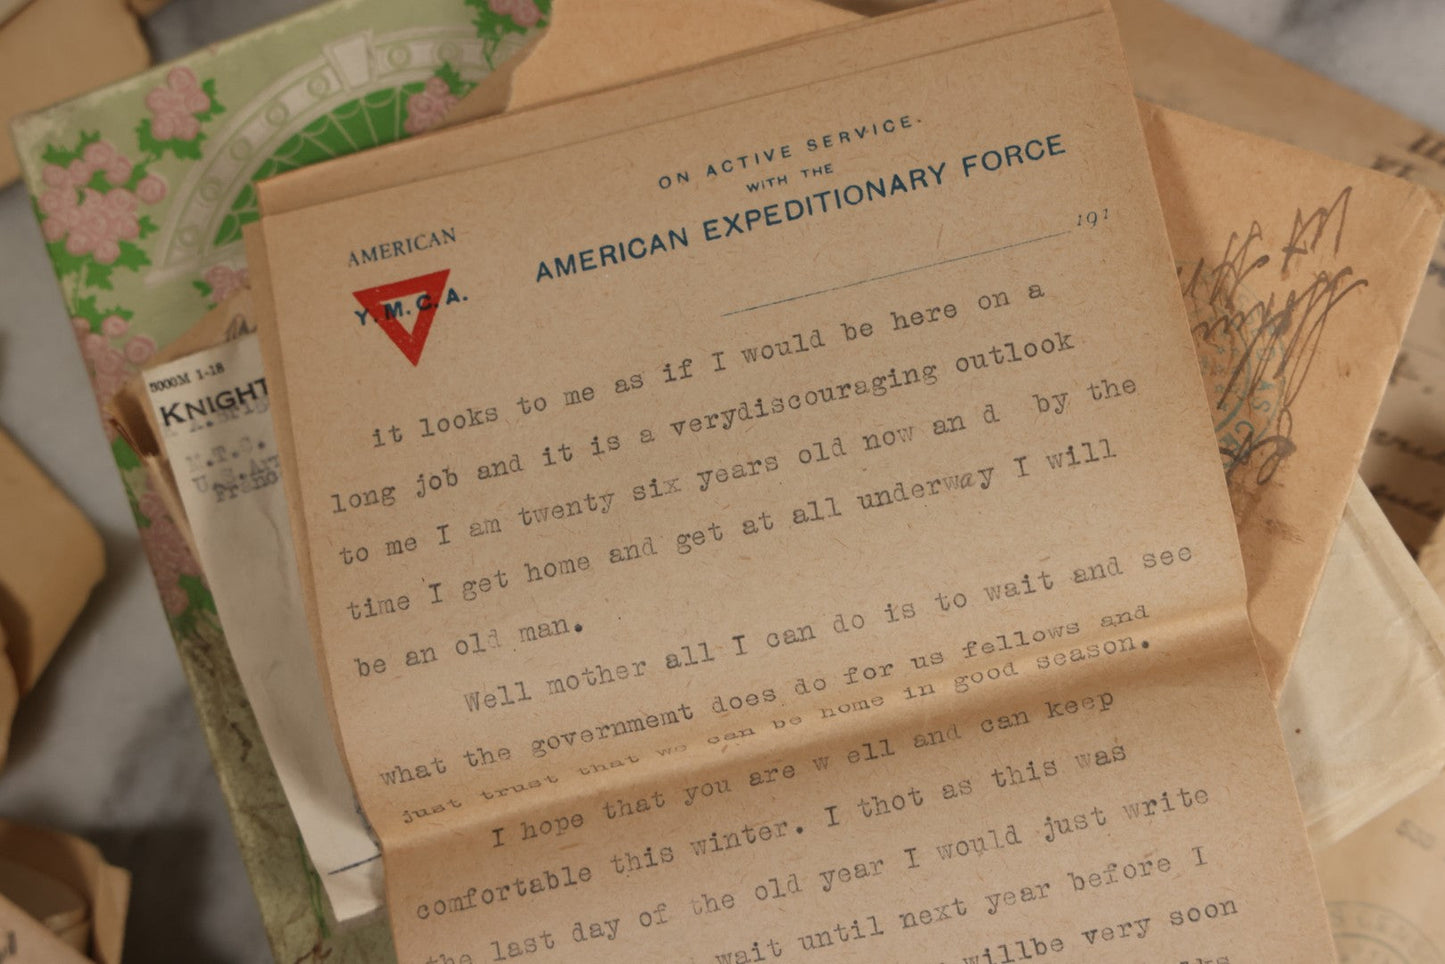 ON ACTIVE SERVICE.
WITH THE
AMERICAN EXPEDITIONARY FORCE
AMERICAN
Y.M.C.A.
191
it looks to me as if I would be here on a
long job and it is a verydiscouraging outlook
to me I am twenty six years old now an d by the
time I get home and get at all underway I will
be an old man.
Well mother all I can do is to wait and see
what the governmemt does do for us fellows and
just trust that we can be home in good season.
I hope that you are w ell and can keep
comfortable this winter. I thot as this was
the last day of the old year I would just write
wait until next year before I
willbe very soon
5000M 1-18
KNIGHT
M.T.S.
U.S.
Franc